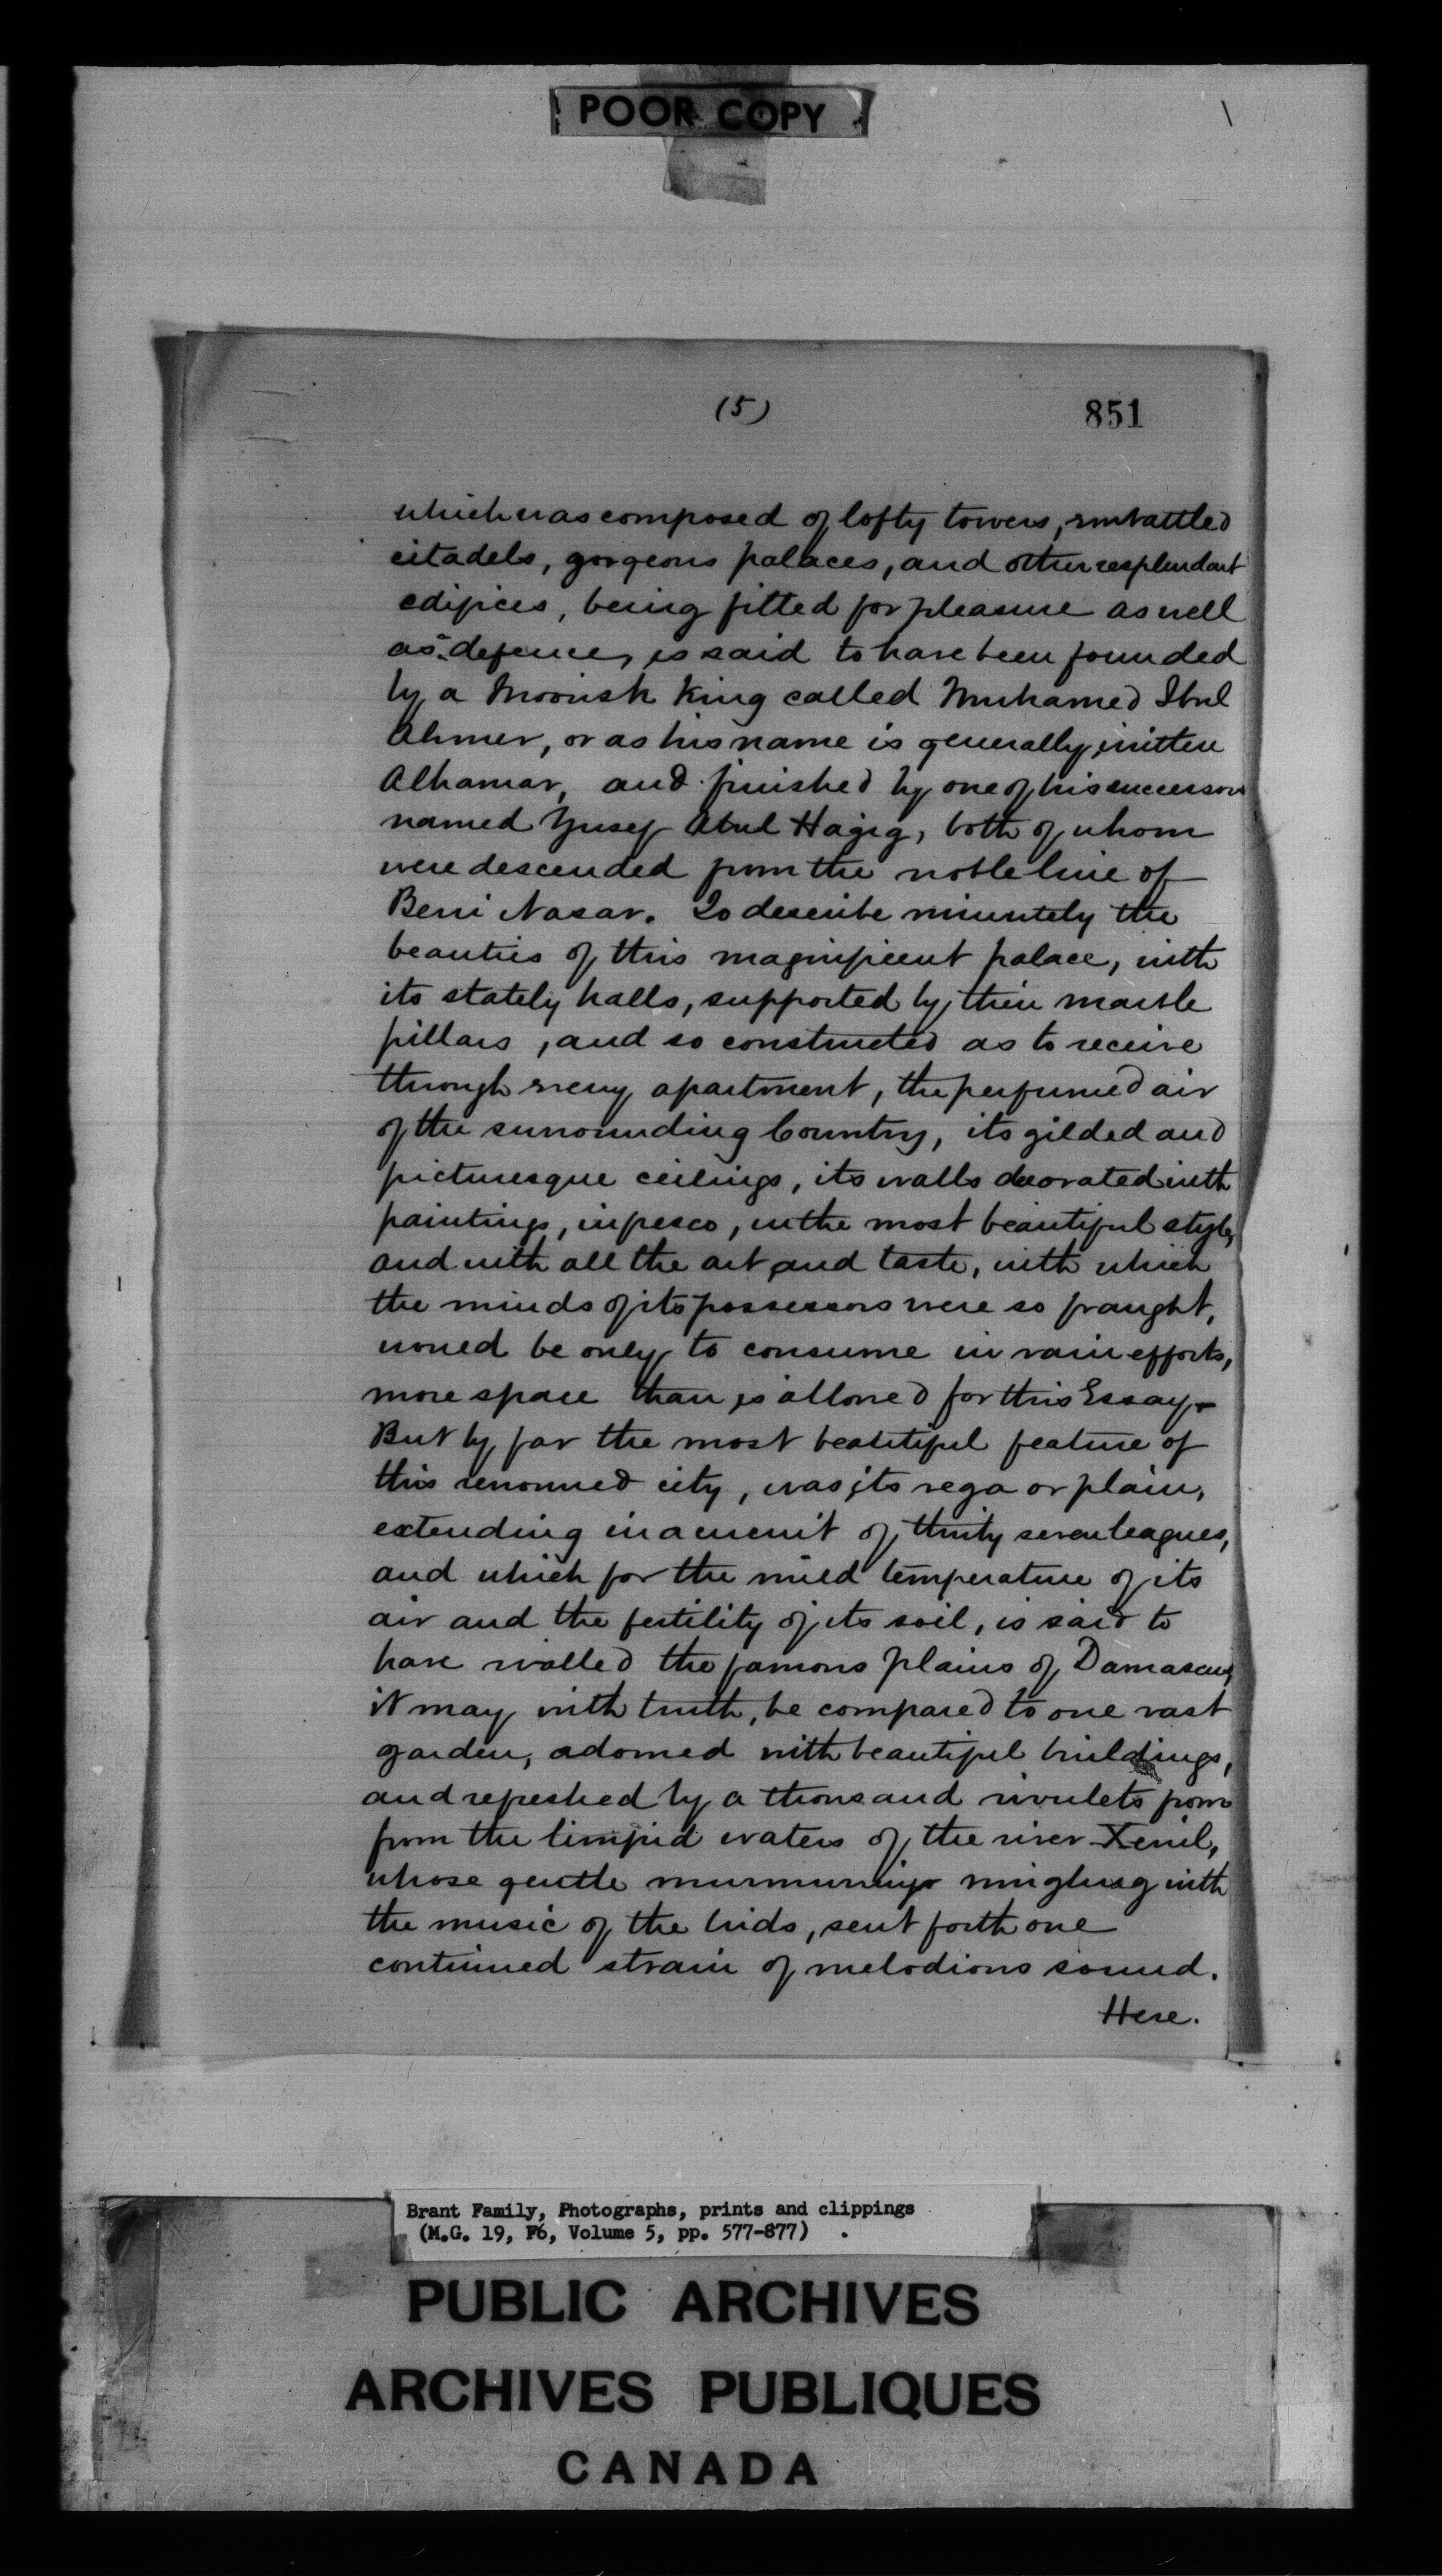 POOR COPY
(5)
851
which was composed of lofty towers, embattled
citadels, gorgeous palaces, and other resplendant
edifices, being fitted for pleasure as well
as defence, is said to have been founded
by a Moorish King called Muhamed Ibnl
Ahmer, or as his name is generally, written
Alhamar, and finished by one of his successors
named Yusef Abul Hagig, both of whom
were descended from the noble line of
Beni Nasar. To describe minutely the
beauties of this magnificent palace, with
its stately halls, supported by their marble
pillars, and so constructed as to receive
through every apartment, the perfumed air
of the surrounding Country, its gilded and
picturesque ceilings, its walls decorated with
paintings, in fresco, in the most beautiful style,
and with all the art and taste, with which
the minds of its possessors were so fraught,
would be only to consume in vain efforts,
more space than is allowed for this Essay.
But by far the most beautiful feature of
this renowned city, was its vega or plain,
extending in a circuit of thirty seven leagues,
and which for the mild temperature of its
air and the fertility of its soil, is said to
have rivalled the famous plains of Damascus,
it may with truth, be compared to one vast
garden, adorned with beautiful buildings,
and refreshed by a thousand rivulets from
from the limpid waters of the river Xenil,
whose gentle murmurings mingling with
the music of the birds, sent forth one
continued strain of melodious sound.
Here.
Brant Family, Photographs, prints and clippings
(M.G. 19, F6, Volume 5, pp. 577-877)
PUBLIC ARCHIVES
ARCHIVES PUBLIQUES
CANADA